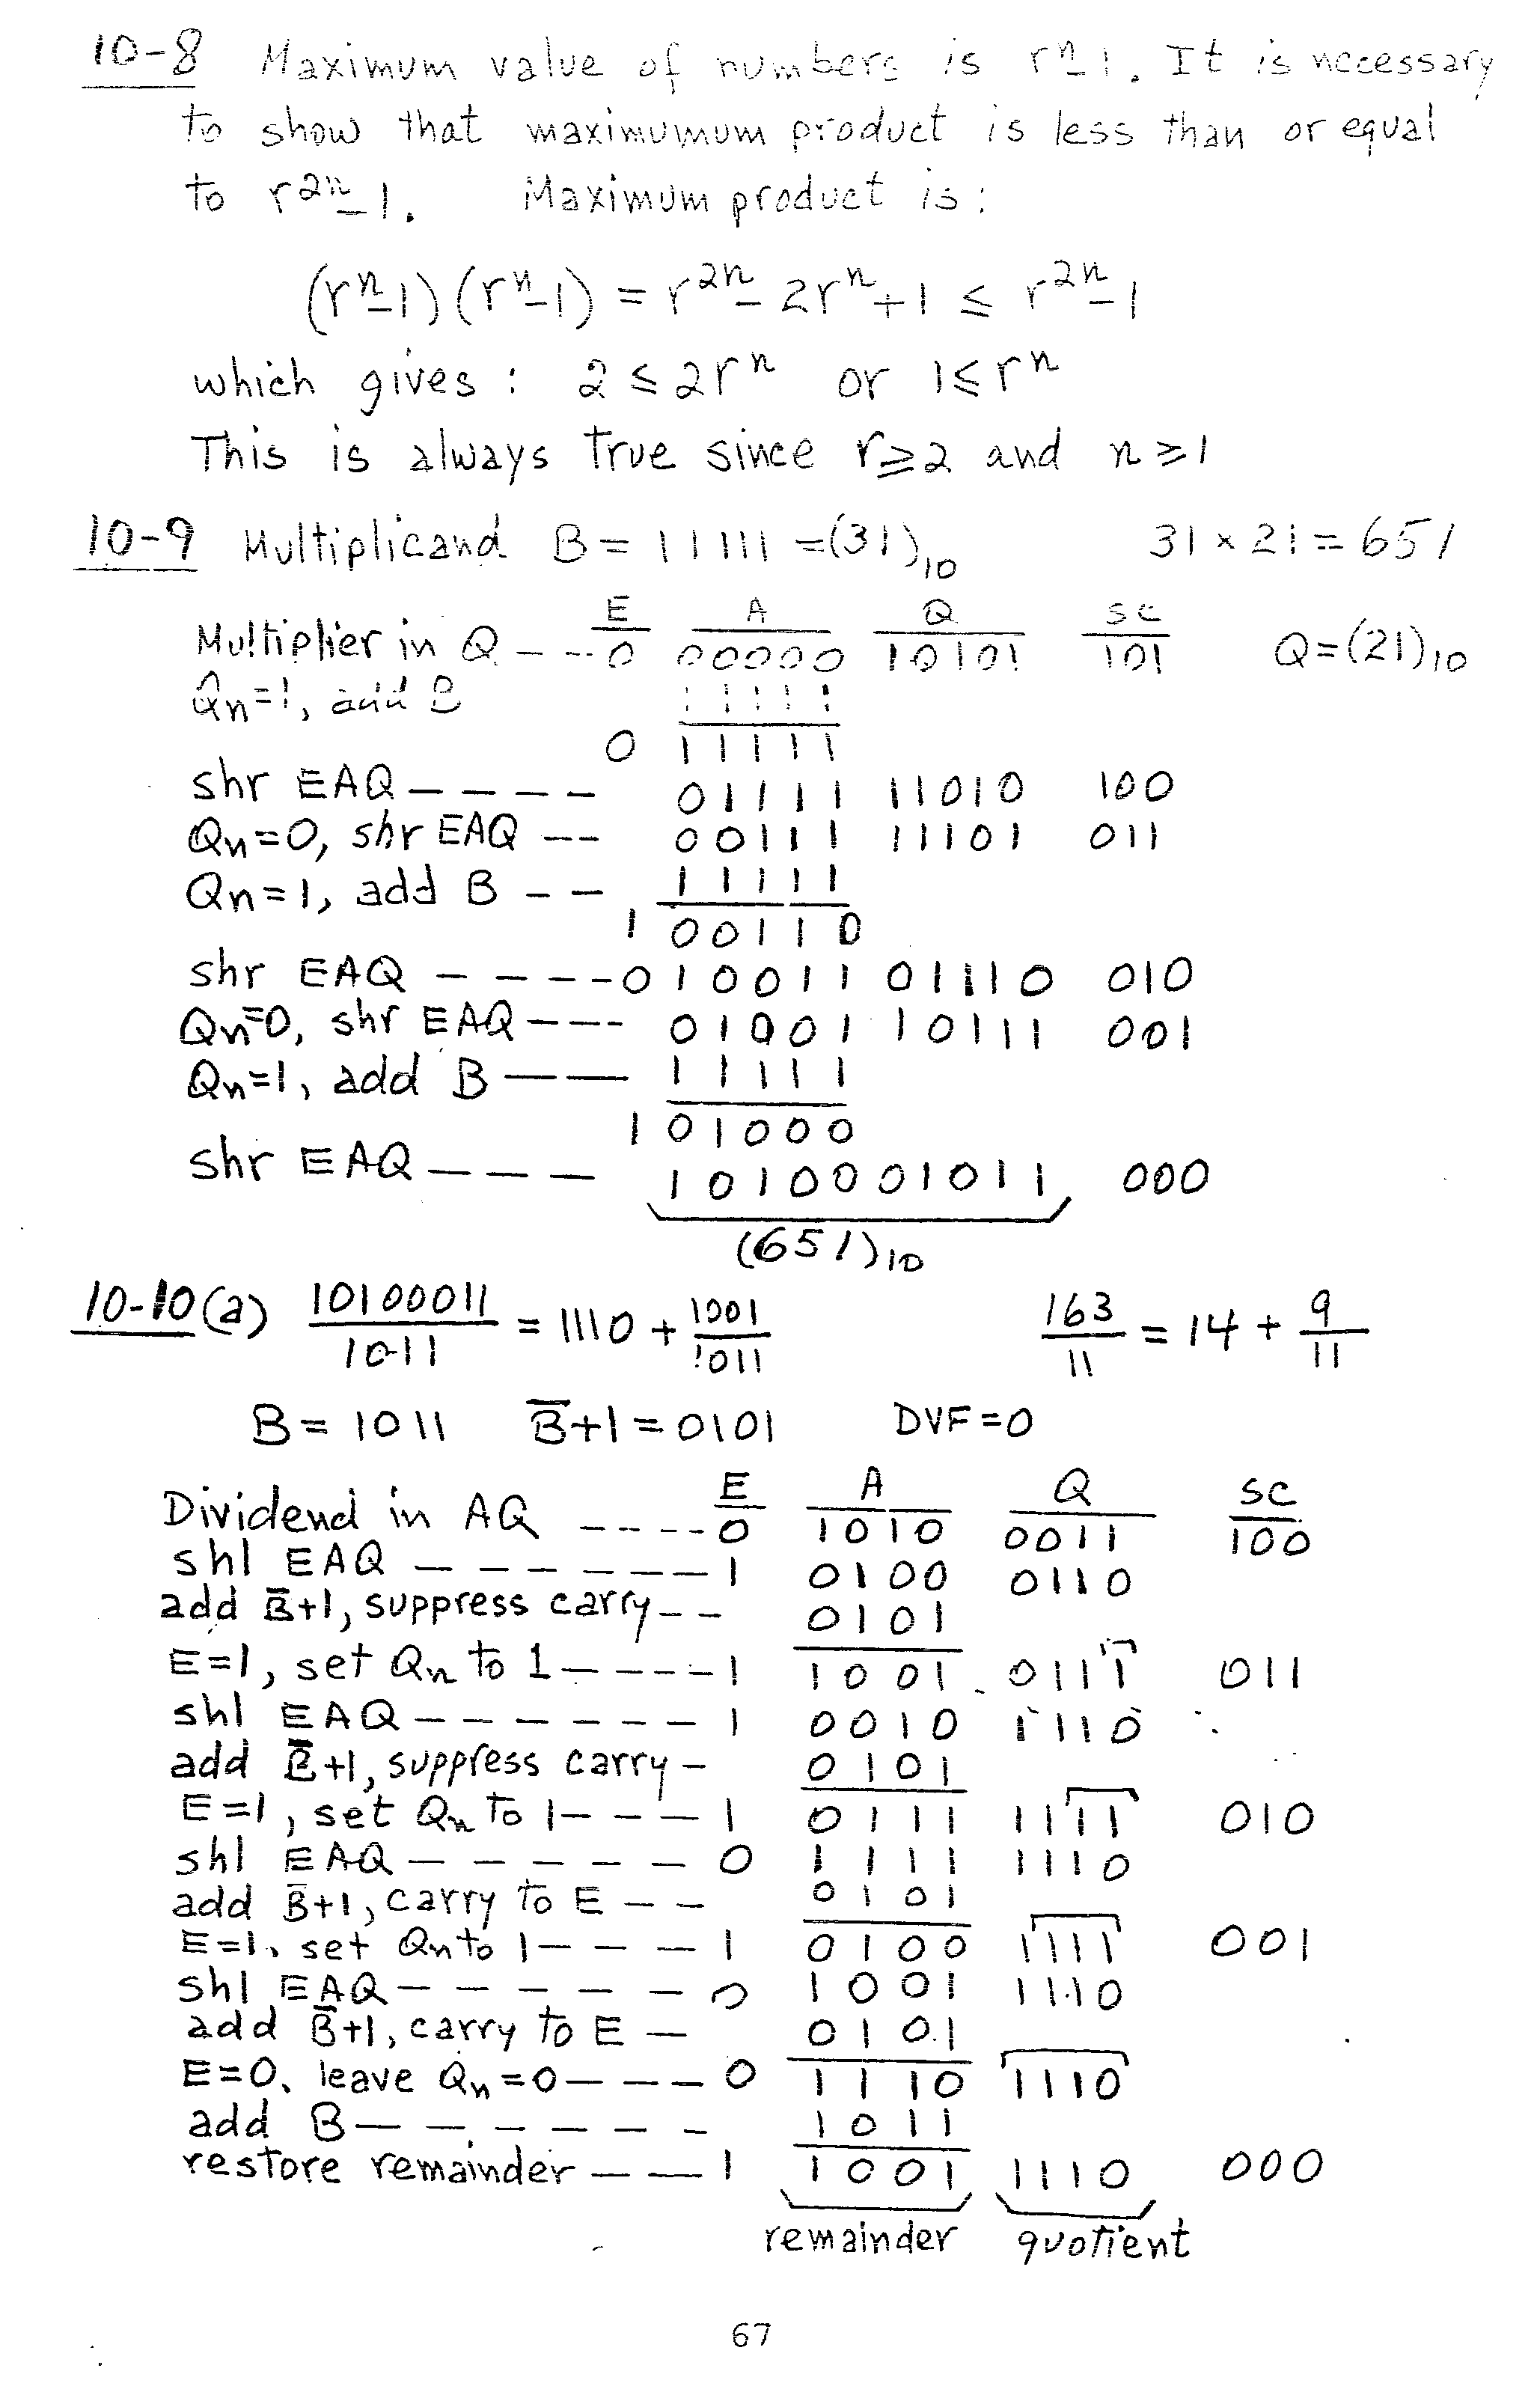 10-8 Maximum value of numbers is rⁿ-1. It is necessary
to show that maximumum product is less than or equal
to r²ⁿ-1. Maximum product is:
(rⁿ-1)(rⁿ-1) = r²ⁿ- 2rⁿ+1 ≤ r²ⁿ-1
which gives: 2 ≤ 2rⁿ or 1≤rⁿ
This is always true since r≥2 and n≥1
10-9 Multiplicand B = 11111 =(31)₁₀ 31 × 21 = 651
E A Q SC
Multiplier in Q - - - 0 00000 10101 101 Q=(21)₁₀
Qn=1, add B 11111
0 11111
shr EAQ - - - - 01111 11010 100
Qn=0, shr EAQ - - 00111 11101 011
Qn=1, add B - - 11111
1 00110
shr EAQ - - - - 0 10011 01110 010
Qn=0, shr EAQ - - - 01001 10111 001
Qn=1, add B - - 11111
1 01000
shr EAQ - - - 1010001011 000
(651)₁₀
10-10(a) 10100011/1011 = 1110 + 1001/1011 163/11 = 14 + 9/11
B = 1011 B̅+1 = 0101 DVF=0
E A Q SC
Dividend in AQ - - - - 0 1010 0011 100
shl EAQ - - - - - - 1 0100 0110
add B̅+1, suppress carry - - 0101
E=1, set Qn to 1 - - - - 1 1001 0111 011
shl EAQ - - - - - - 1 0010 1110
add B̅+1, suppress carry - 0101
E=1, set Qn to 1 - - - 1 0111 1111 010
shl EAQ - - - - - 0 1111 1110
add B̅+1, carry to E - - 0101
E=1, set Qn to 1 - - - 1 0100 1111 001
shl EAQ - - - - - 0 1001 1110
add B̅+1, carry to E - 0101
E=0, leave Qn=0 - - - 0 1110 1110
add B - - - - - - 1011
restore remainder - - 1 1001 1110 000
remainder quotient
67